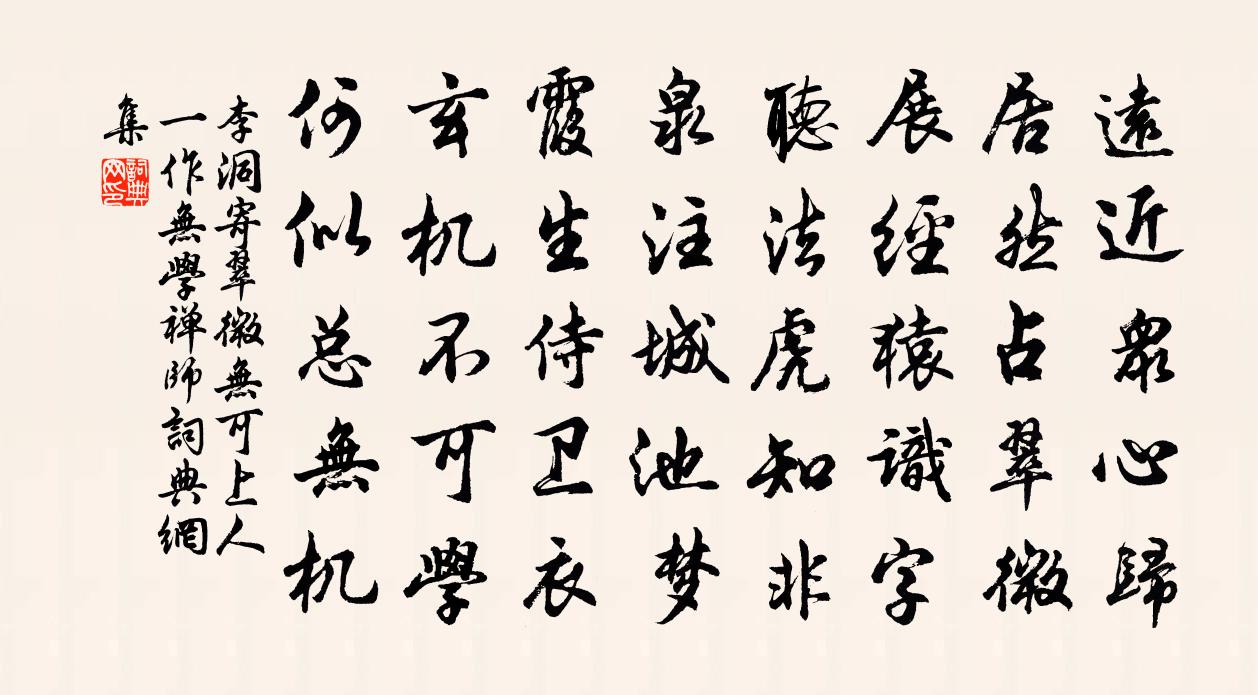 遠近衆心歸
居然占翠微
展經猿識字
聽法虎知非
泉注城池梦
霞生侍卫衣
玄机不可學
何似总無机
李洞寄翠微無可上人
一作無學禅師詞典網
集
詞典網印